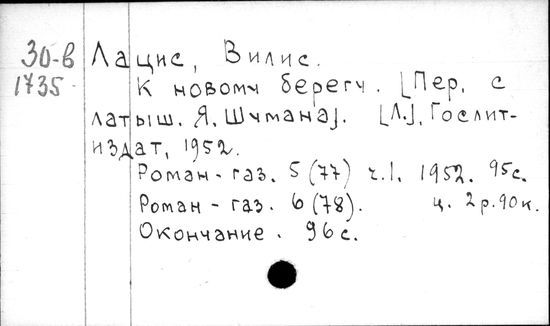 30-в Лацис, Вилис.
1735 К новому берегу. [Пер. с
латыш. Я. Шумана]. [Л.], Гослит-
издат, 1952.
Роман-газ. 5(77) ч.1. 1952. 95с.
Роман-газ. 6(78). ц. 2р.90к.
Окончание. 96с.